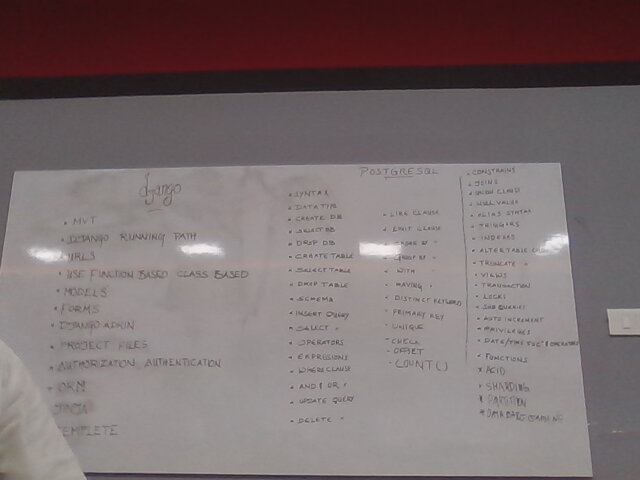 django
MVT
DJANGO RUNNING PATH
URLS
USE FUNCTION BASED CLASS BASED
MODELS
FORMS
DJANGO ADMIN
PROJECT FILES
AUTHORIZATION AUTHENTICATION
ORM
JINJA
TEMPLETE
POSTGRESQL
SYNTAX
DATATYPE
CREATE DB
SELECT DB
DROP DB
CREATE TABLE
SELECT TABLE
DROP TABLE
SCHEMA
INSERT QUERY
SELECT "
OPERATORS
EXPRESSIONS
WHERE CLAUSE
AND & OR "
UPDATE QUERY
DELETE "
LIKE CLAUSE
LIMIT CLAUSE
ORDER BY "
GROUP BY "
WITH "
HAVING "
DISTINCT KEYWORD
PRIMARY KEY
UNIQUE
CHECK
OFFSET
COUNT()
CONSTRAINS
JOINS
NULL VALUE
ALIAS SYNTAX
TRIGGERS
INDEXES
ALTER TABLE
TRUNCATE "
VIEWS
TRANSACTION
LOCKS
SUB QUERIES
AUTO INCREMENT
PRIVILEGES
DATE/TIME
FUNCTIONS
ACID
SHARDING
PARTITION